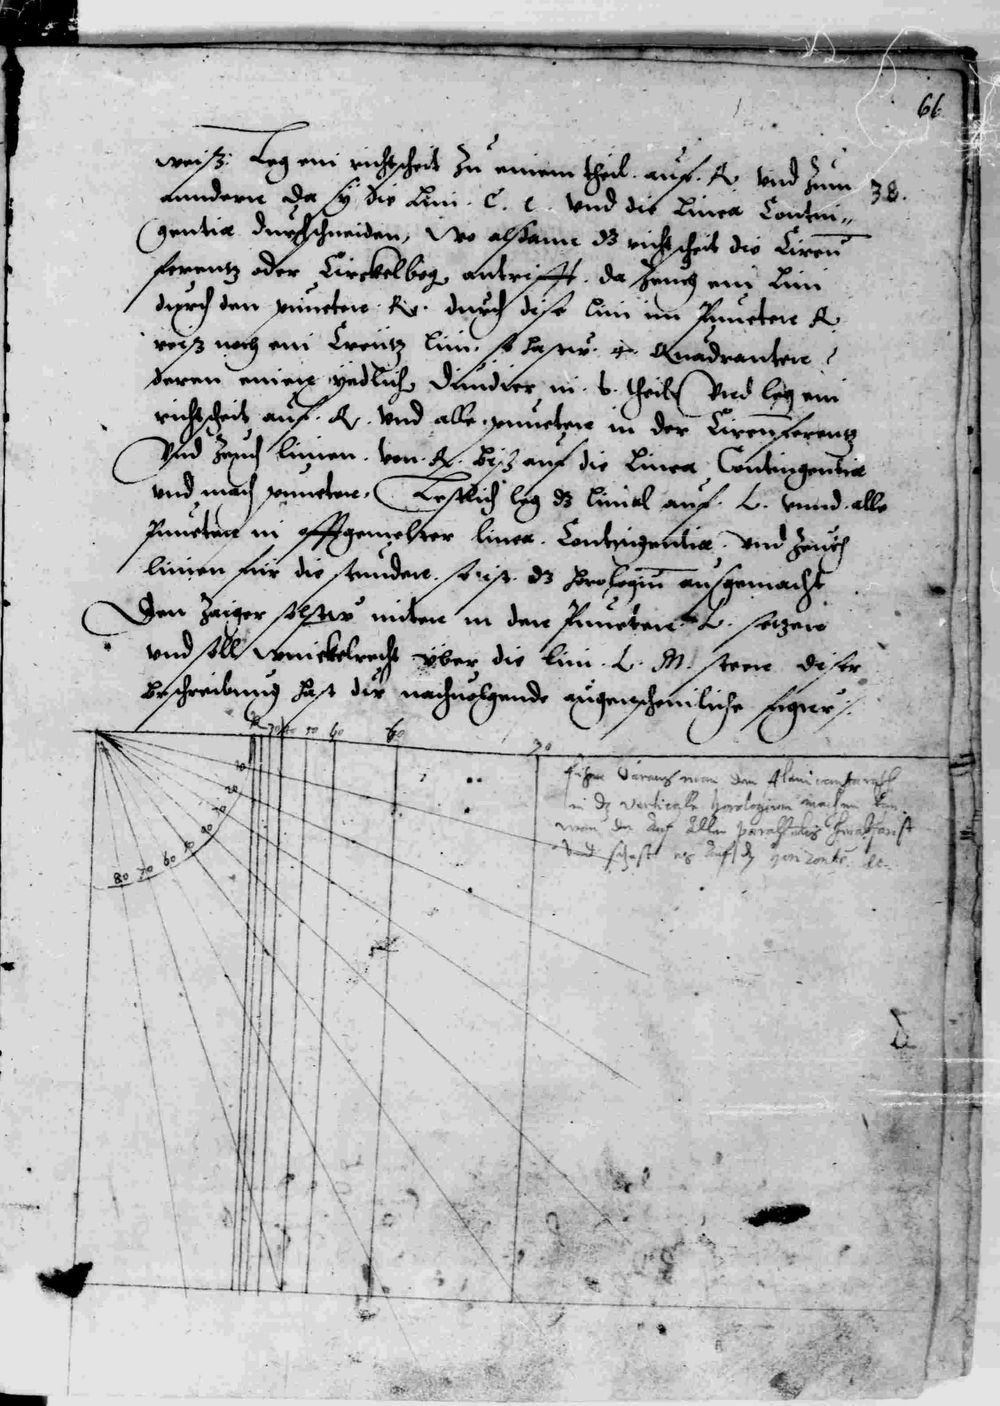 66
weiß. Leg ein richtscheit zu einem theil auf. R. vnd zum
38.
anndern da sy die Lini. C. e. vnd die Linea Contin¬
gentia durchschneiden, Wo alsdann dz richtscheit die Circū
ferentz oder Circkelbog antrifft. da zeuch ein Lini
durch den puncten. R. durch dise lini im Puncten R
reiß noch ein Creütz lini. so hastu. 4. Quadranten
deren einen yedlich diuidier in. 6. theil Vnd leg ein
richtscheit auf. R. vnd alle puncten in der Circūferentz
Vnd zeuch linien. von. R. biß auf die Linea Contingentia
vnd mach puncten. Letstlich leg dz lineal auf. L. vnnd alle
Puncten in offtgemelter linea. Contingentia. vnd zeuch
linien für die stunden. so ist. dz horologiū ausgemacht
Den Zaiger solstu miten in den Puncten L. setzen
vnd soll winckelrecht vber die lini. L. M. steen diser
beschreibung hast du nachuolgende augenscheinliche figur.
60
60
70
10
20
80 70 60
man den
in dz verticale horologium machen
man auf allen
vnd auf dz